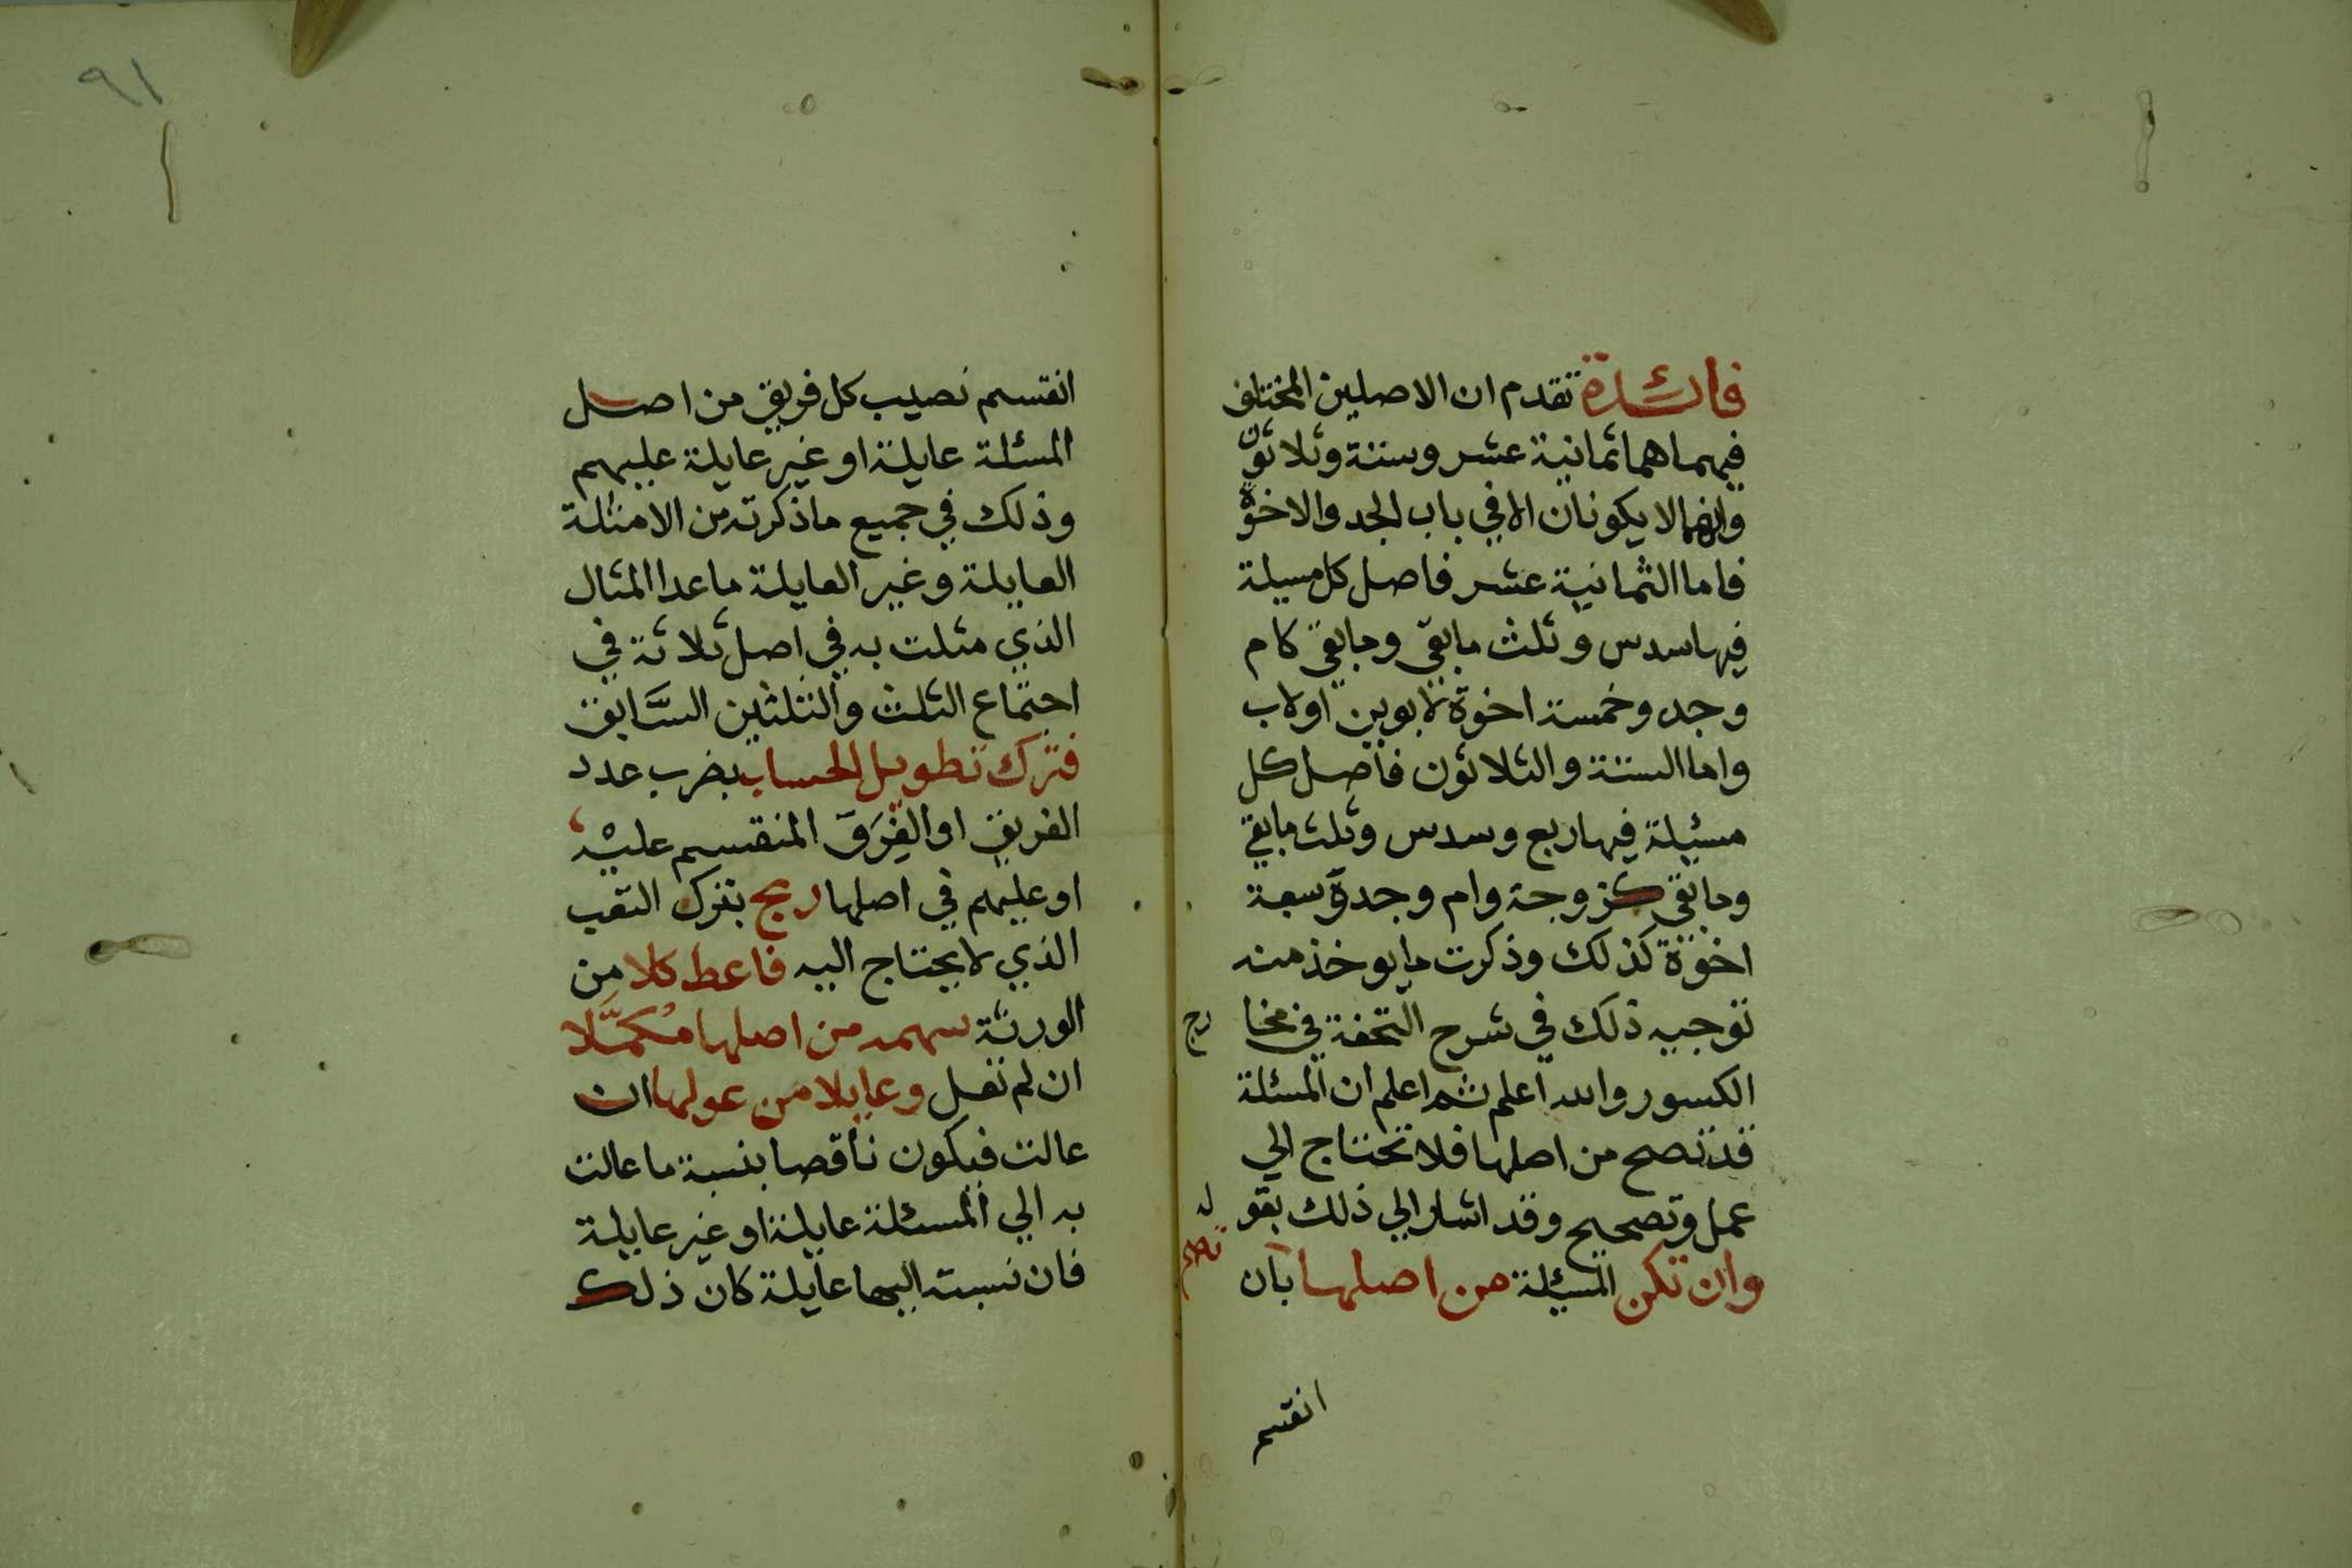 فائدة تقدم ان الاصلين المختلف
فيهما هما ثمانية عشر وستة وثلاثون
وانهما لا يكونان الا في باب الجد والاخوة
فاما الثمانية عشر فاصل كل مسيلة
فيها سدس وثلث مابقي ومابقي كام
وجد وخمسة اخوة لابوين او لاب
واما الستة والثلاثون فاصل كل
مسئيلة فيها ربع وسدس وثلث مابقي
ومابقي كزوجة وام وجد وسبعة
اخوة كذلك وذكرت ما يوخذ منه
توجيه ذلك في شرح التحفة في مخارج
الكسور والله اعلم ثم اعلم ان المسئلة
قد تصح من اصلها فلا تحتاج الي
عمل وتصحيح وقد اشار الي ذلك بقوله
وان تكن المسئيلة من اصلها تصح بان
انقسم
٩١
انقسم نصيب كل فريق من اصل
المسئلة عايلة او غير عايلة عليهم
وذلك في جميع ما ذكرته من الامثلة
العايلة وغير العايلة ما عدا المثال
الذي مثلت به في اصل ثلاثة في
اجتماع الثلث والثلثين السَّابق
فترك تطويل الحساب بضرب عدد
الفريق او الفِرَق المنقسم عليْه
او عليهم في اصلها ربح بترك التعب
الذي لا يحتاج اليه فاعط كلا من
الورثة سهمه من اصلها مُكمَّلا
ان لم تعل وعايلا من عولها ان
عالت فيكون ناقصا بنسبة ما عالت
به الي المسئلة عايلة او غير عايلة
فان نسبته اليها عايلة كان ذلك